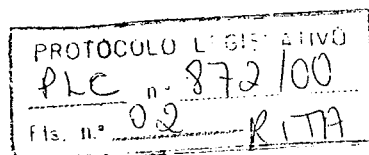 PROTOCOLO LEGISLATIVO
PLC n.º 872/00
Fls. n.º 02 RITA